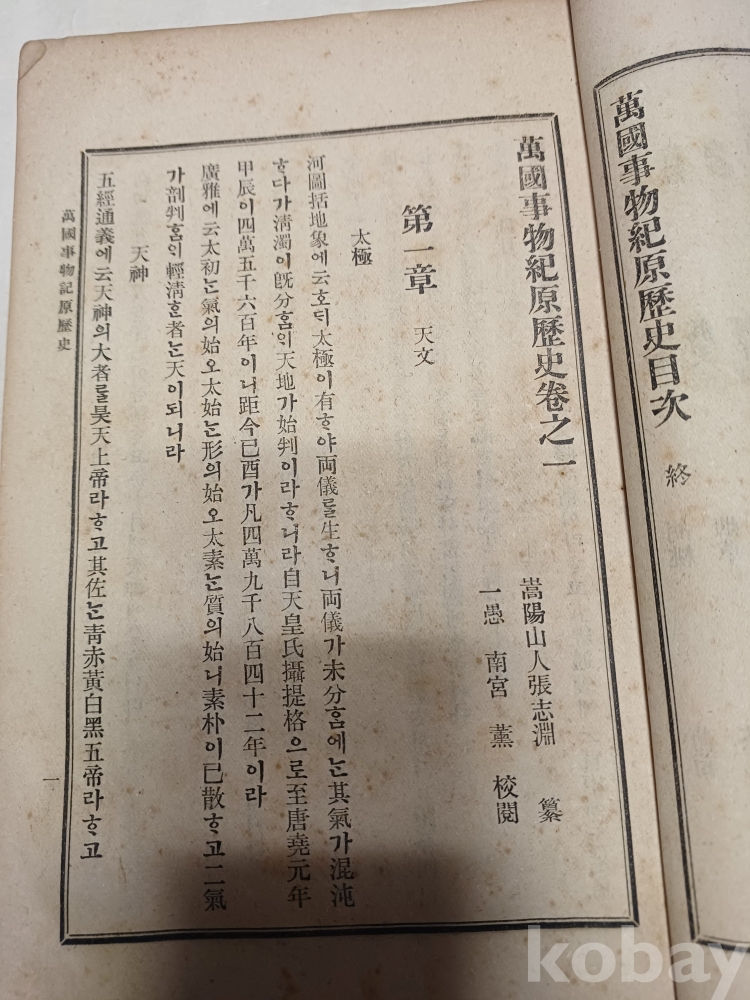 萬國事物紀原歷史目次 終
萬國事物紀原歷史卷之一
嵩陽山人張志淵 纂
一愚 南宮 薰 校閱
第一章 天文
太極
河圖括地象에云호ᄃᆡ太極이有ᄒᆞ야兩儀를生ᄒᆞ니兩儀가未分ᄒᆞᆷ에ᄂᆞᆫ其氣가混沌
ᄒᆞ다가淸濁이旣分ᄒᆞᆷᄋᆡ天地가始判이라ᄒᆞ니라自天皇氏攝提格으로至唐堯元年
甲辰이四萬五千六百年이니距今己酉가凡四萬九千八百四十二年이라
廣雅에云太初ᄂᆞᆫ氣의始오太始ᄂᆞᆫ形의始오太素ᄂᆞᆫ質의始니素朴이已散ᄒᆞ고二氣
가剖判ᄒᆞᆷᄋᆡ輕淸ᄒᆞᆫ者ᄂᆞᆫ天이되니라
天神
五經通義에云天神의大者를昊天上帝라ᄒᆞ고其佐ᄂᆞᆫ靑赤黃白黑五帝라ᄒᆞ고
萬國事物記原歷史
一
kobay